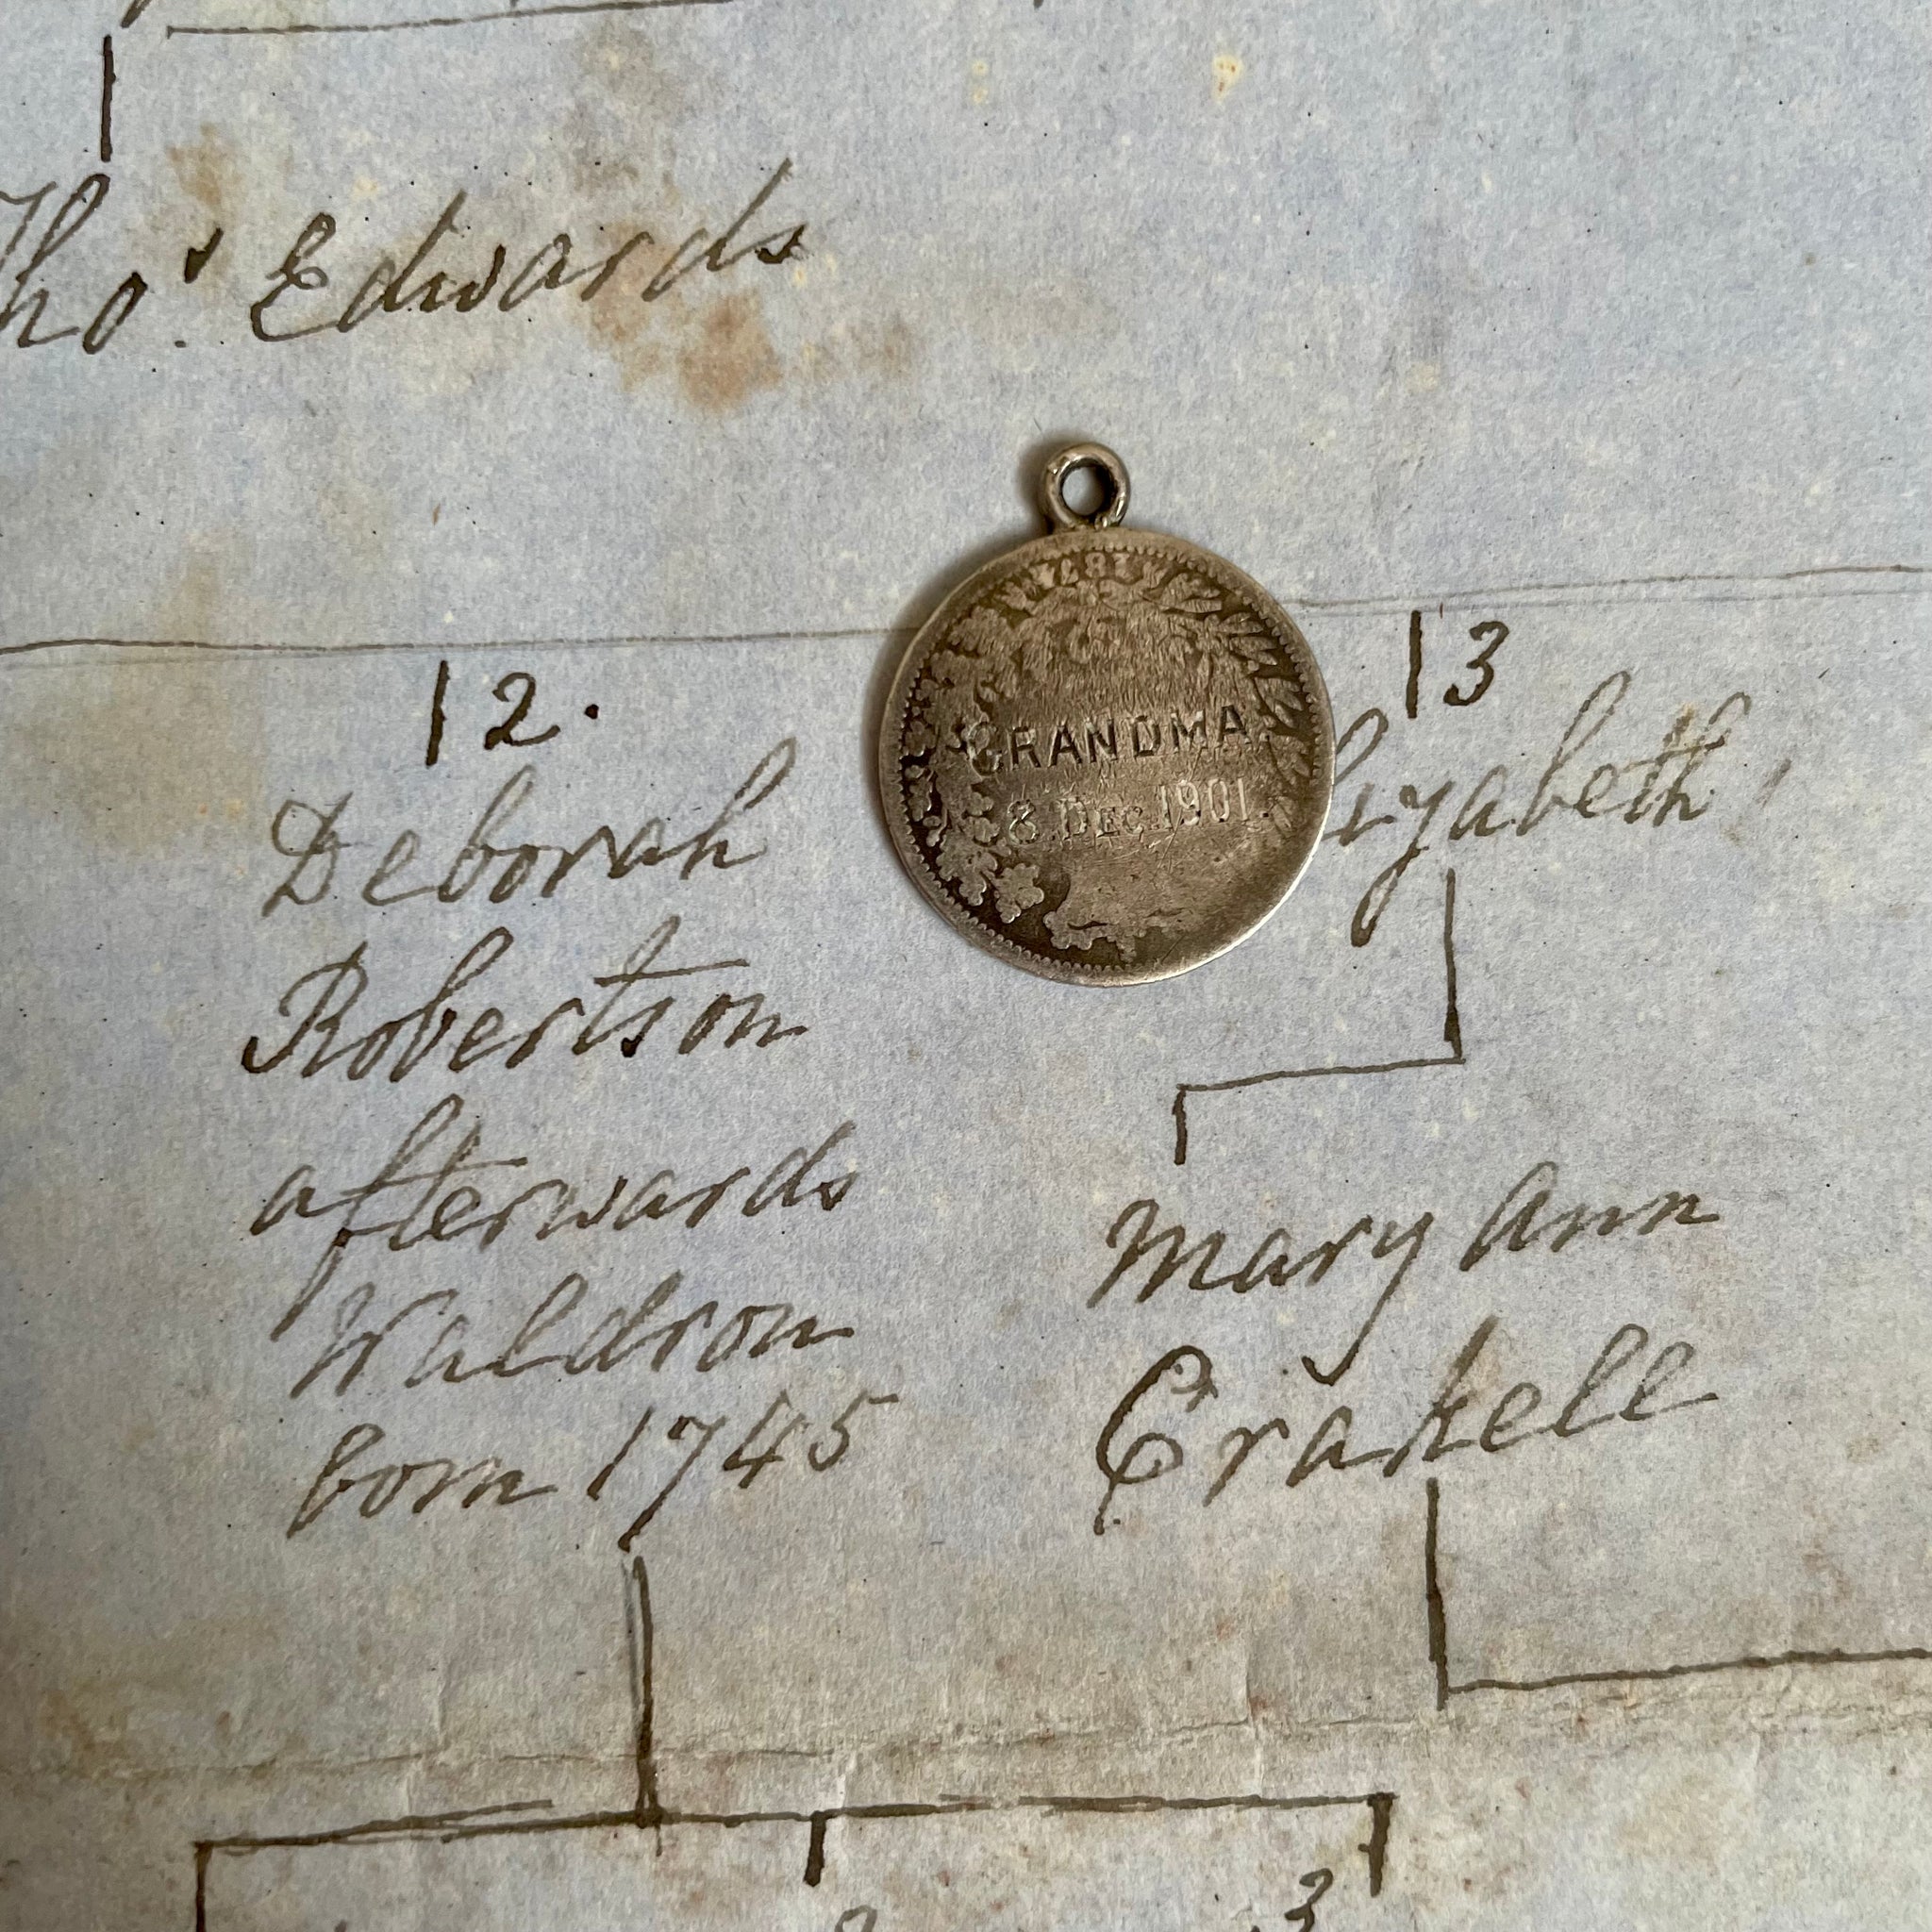 Thos. Edwards
12.
Deborah
Robertson
afterwards
Waldron
born 1745
GRANDMA.
8. DEC. 1901.
13
Elizabeth
Mary Ann
Crakell
2
3